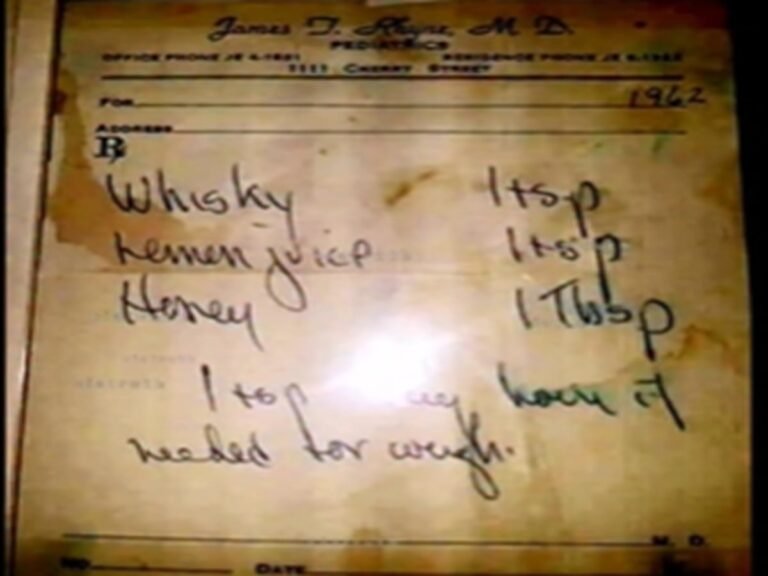 James T. Rhyne, M. D.
PEDIATRICS
OFFICE PHONE RESIDENCE PHONE
1111 CHERRY STREET
FOR 1962
ADDRESS
℞
Whisky 1 tsp
Lemon juice 1 tsp
Honey 1 Tbsp
1 tsp hour if
needed for cough.
M. D.
NO. DATE